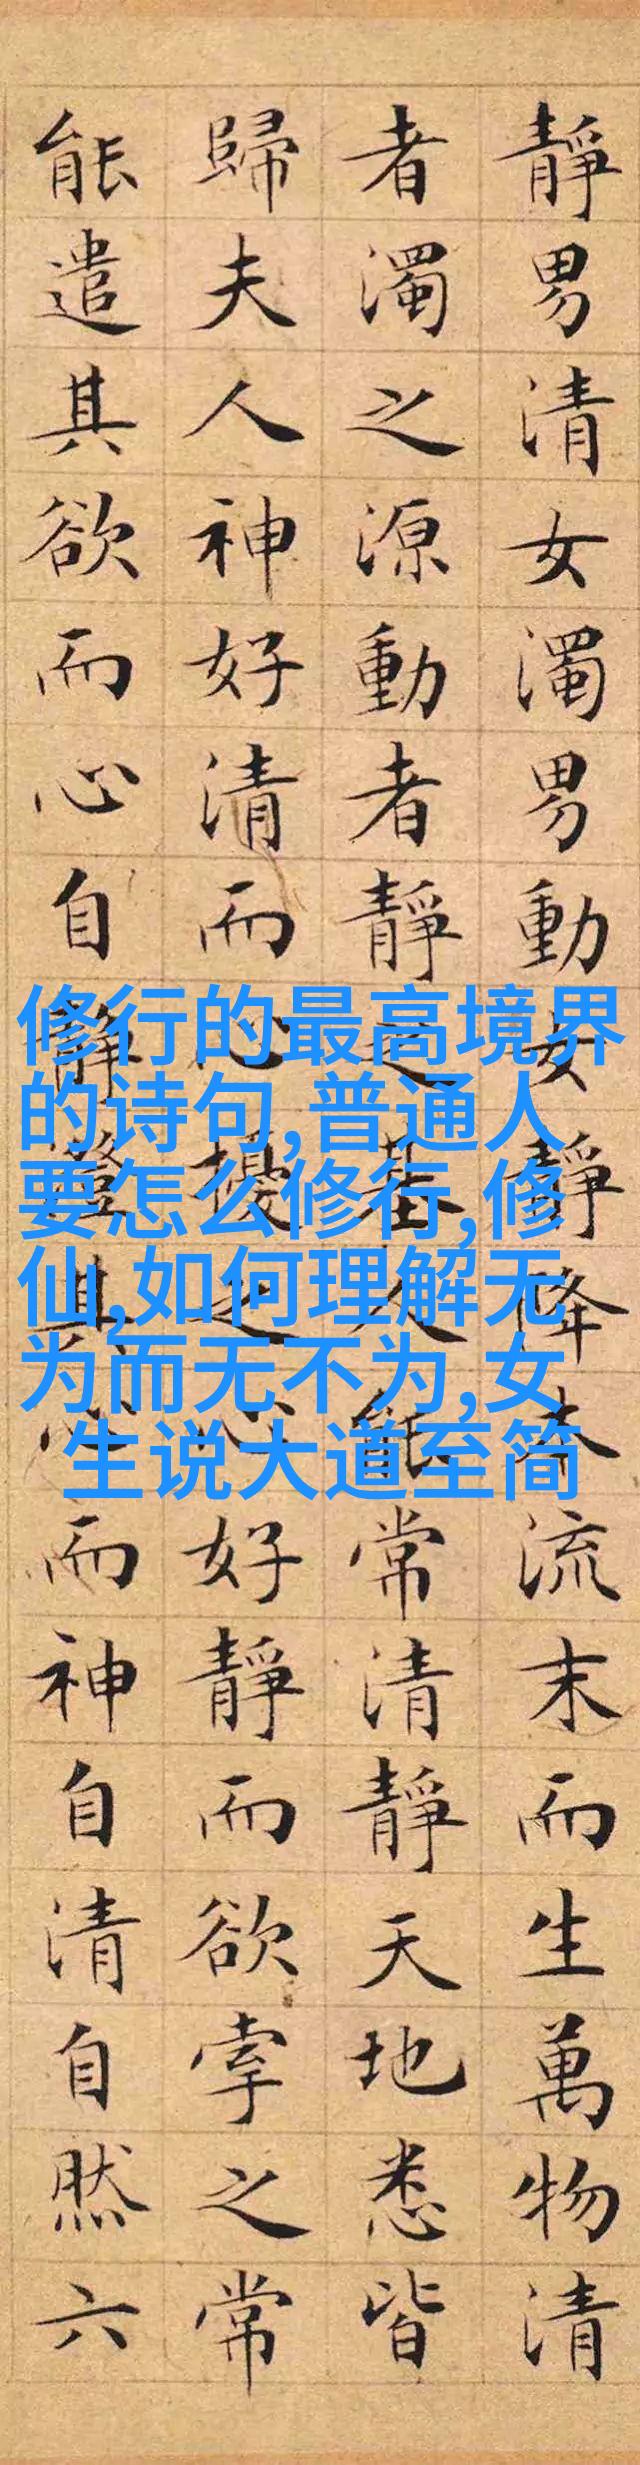 靜男清女濁男動女靜降本流末而生萬物清
者濁之源動者靜之基人能常清靜天地悉皆
歸夫人神好清而心擾之心好靜而欲牽之常
能遣其欲而心自靜澄其心而神自清自然六
修行的最高境界
的诗句,普通人
要怎么修行,修
仙,如何理解无
为而无不为,女
生说大道至简